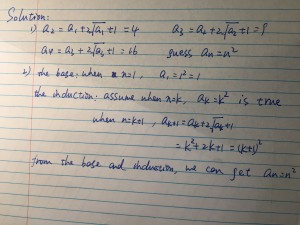 Solution:
1) a₂ = a₁ + 2√a₁ + 1 = 4 a₃ = a₂ + 2√a₂ + 1 = 9
a₄ = a₃ + 2√a₃ + 1 = 16 guess aₙ = n²
2) the base: when n=1, a₁ = 1² = 1
the induction: assume when n=k, aₖ = k² is true
when n=k+1, aₖ₊₁ = aₖ + 2√aₖ + 1
= k² + 2k + 1 = (k+1)²
from the base and induction, we can get aₙ = n²